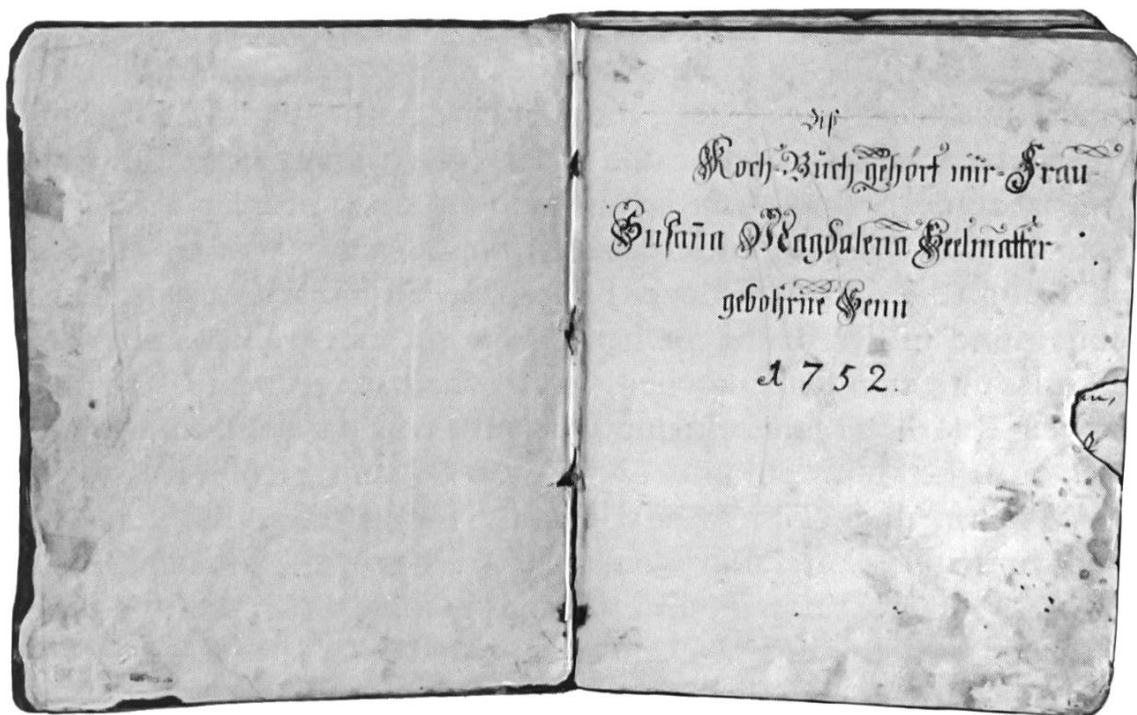 Diß
Koch-Buch gehört mir Frau
Susaña Magdalena Seelmatter
gebohrne Senn
1752.